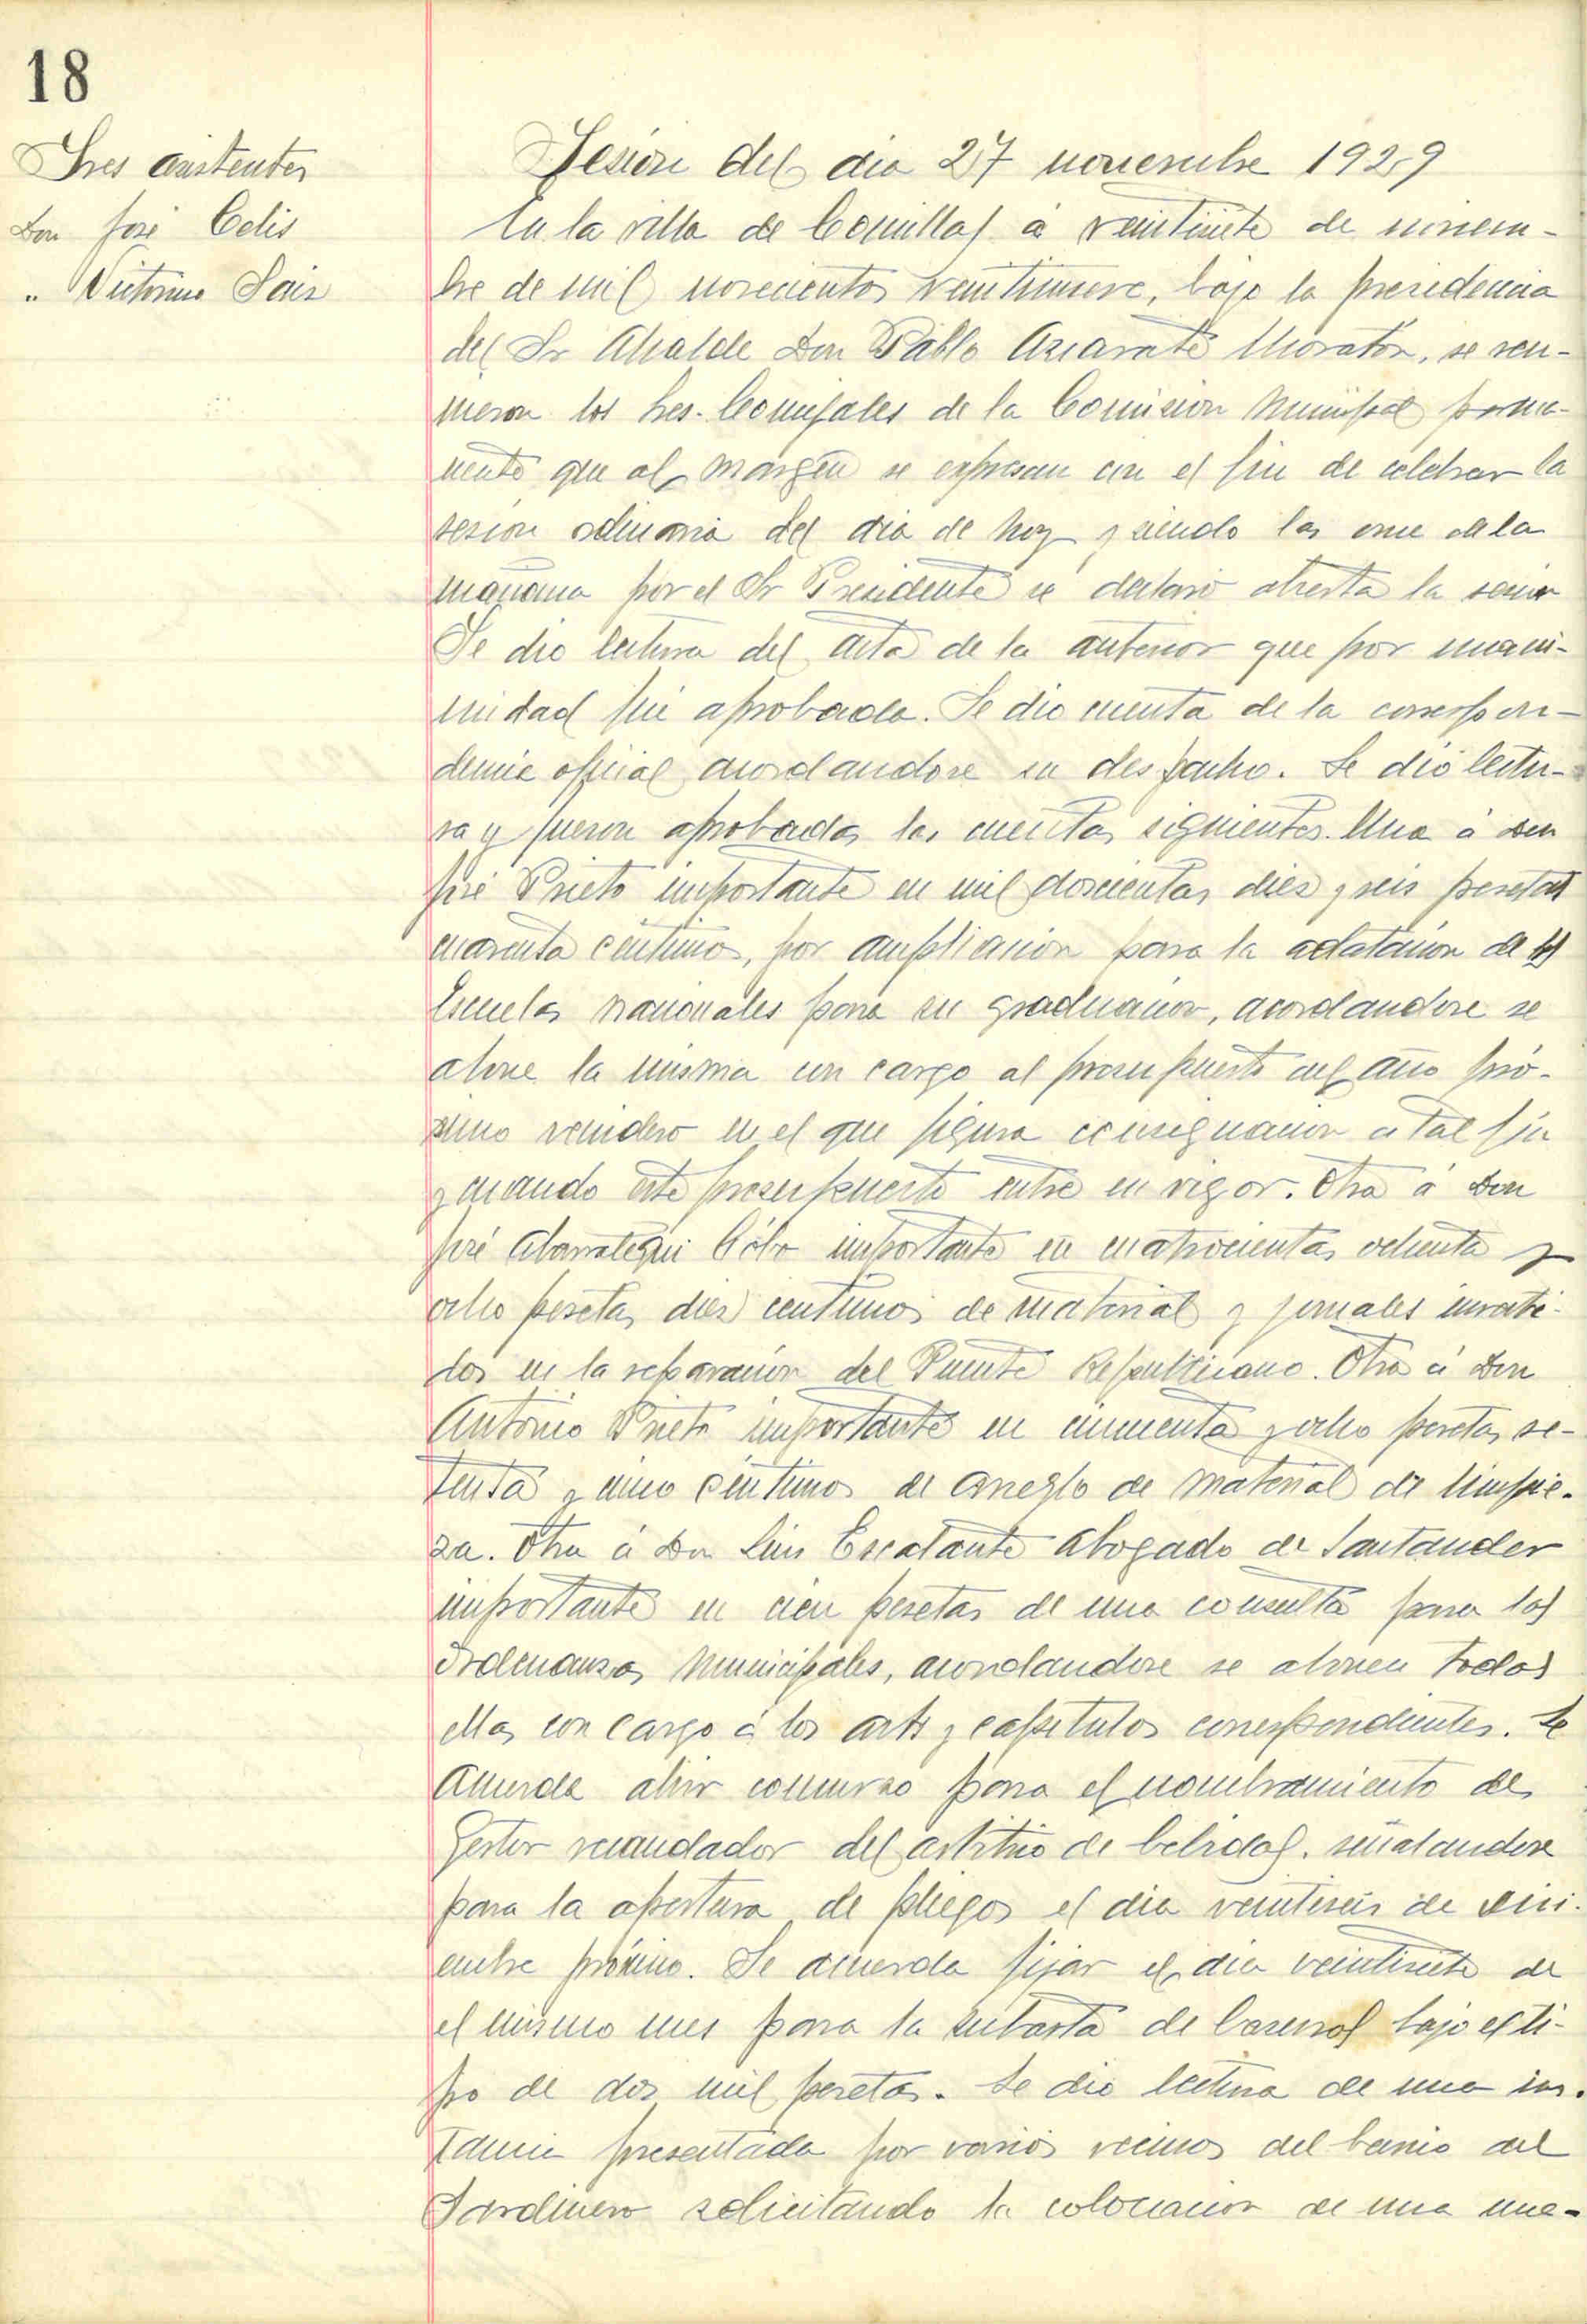 18
Sres asistentes
Don José Celis
" Victorino Sainz
Sesión del dia 27 noviembre 1929
En la villa de Comillas á veintisiete de noviem-
bre de mil novecientos veintinueve, bajo la presidencia
del Sr Alcalde Don Pablo Azcarate Moratón, se reu-
nieron los Sres. Concejales de la Comision Municipal perma-
nente que al margen se expresan con el fin de celebrar la
sesion ordinaria del dia de hoy y siendo las once de la
mañana por el Sr Presidente se declaró abierta la sesion
Se dio lectura del acta de la anterior que por unani-
midad fué aprobada. Se dio cuenta de la correspon-
dencia oficial acordandose su despacho. Se dió lectu-
ra y fueron aprobadas las cuentas siguientes. Una á Don
José Prieto importante en mil doscientas diez y seis pesetas
cuarenta centimos, por ampliacion para la adatacion de las
Escuelas nacionales para su graduacion, acordandose se
abone la misma con cargo al presupuesto del año pró-
ximo venidero en el que figura consignacion a tal fin
y cuando este presupuesto entre en vigor. Otra á Don
José Abarrategui Cóbo importante en cuatrocientas ochenta y
ocho pesetas diez centimos de material y jornales inverti-
dos en la reparacion del Puente Republicano. Otra á Don
Antonio Prieto importante en cincuenta y ocho pesetas se-
tenta y cinco centimos de arreglo de material de limpie-
za. Otra á Don Luis Escalante Abogado de Santander
importante en cien pesetas de una consulta para las
Ordenanzas Municipales, acordandose se abonen todas
ellas con cargo á los arts y capitulos correspondientes. Se
Acuerda abrir concurso para el nombramiento de
Gestor recaudador del arbitrio de bebidas, señalandose
para la apertura de pliegos el dia veintiseis de Dici-
embre próximo. Se acuerda fijar el dia veintisiete de
el mismo mes para la subasta de basuras bajo el ti-
po de dos mil pesetas. Se dio lectura de una ins-
tancia presentada por varios vecinos del barrio del
Sardinero solicitando la colocacion de una nue-